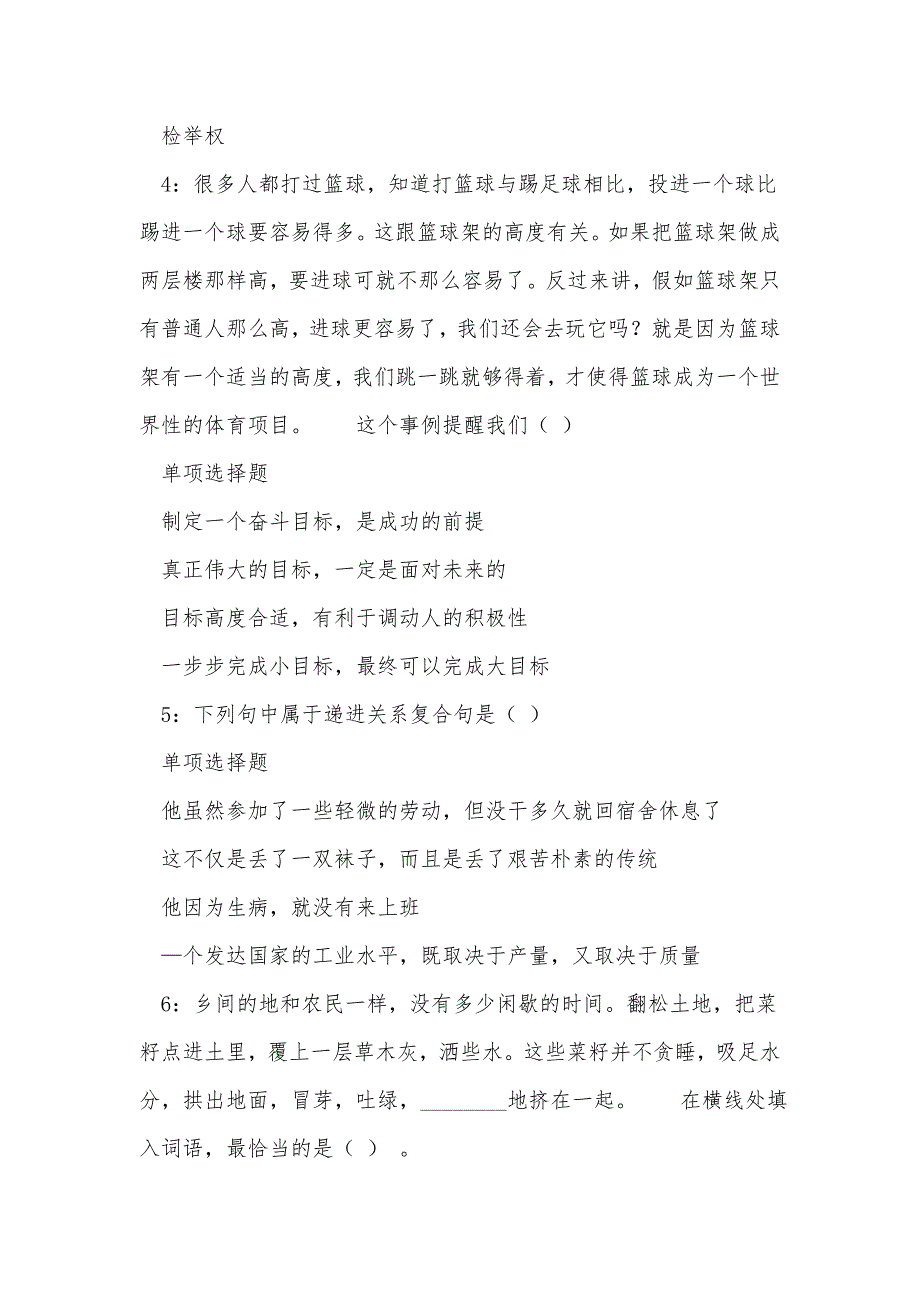 检举权
4：很多人都打过篮球，知道打篮球与踢足球相比，投进一个球比
踢进一个球要容易得多。这跟篮球架的高度有关。如果把篮球架做成
两层楼那样高，要进球可就不那么容易了。反过来讲，假如篮球架只
有普通人那么高，进球更容易了，我们还会去玩它吗？就是因为篮球
架有一个适当的高度，我们跳一跳就够得着，才使得篮球成为一个世
界性的体育项目。　　这个事例提醒我们（ ）
单项选择题
制定一个奋斗目标，是成功的前提
真正伟大的目标，一定是面对未来的
目标高度合适，有利于调动人的积极性
一步步完成小目标，最终可以完成大目标
5：下列句中属于递进关系复合句是（ ）
单项选择题
他虽然参加了一些轻微的劳动，但没干多久就回宿舍休息了
这不仅是丢了一双袜子，而且是丢了艰苦朴素的传统
他因为生病，就没有来上班
—个发达国家的工业水平，既取决于产量，又取决于质量
6：乡间的地和农民一样，没有多少闲歇的时间。翻松土地，把菜
籽点进土里，覆上一层草木灰，洒些水。这些菜籽并不贪睡，吸足水
分，拱出地面，冒芽，吐绿，________地挤在一起。　　在横线处填
入词语，最恰当的是（ ） 。